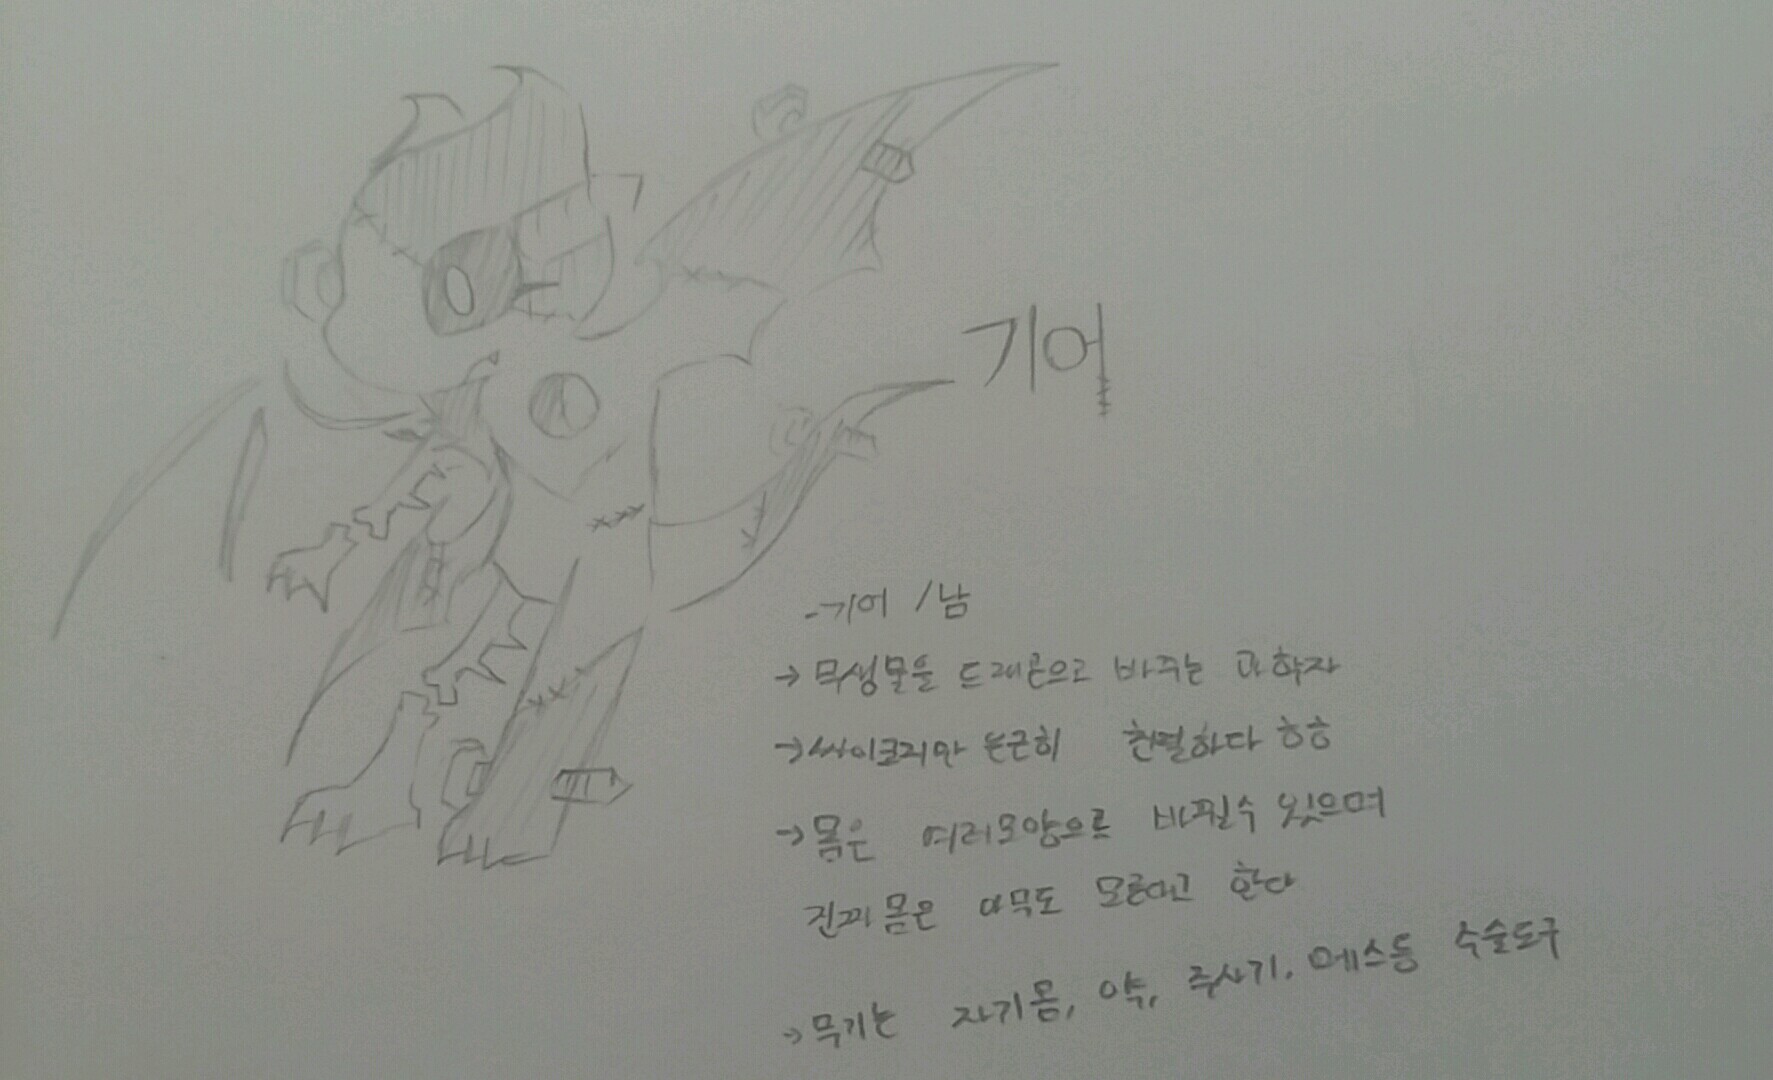 기어
-기어 /남
→무생물을 드래곤으로 바꾸는 과학자
→싸이코지만 은근히 친절하다 ㅎㅎ
→몸은 여러모양으로 바뀔수 있으며
진짜 몸은 아무도 모른다고 한다
→무기는 자기몸, 약, 주사기, 메스등 수술도구